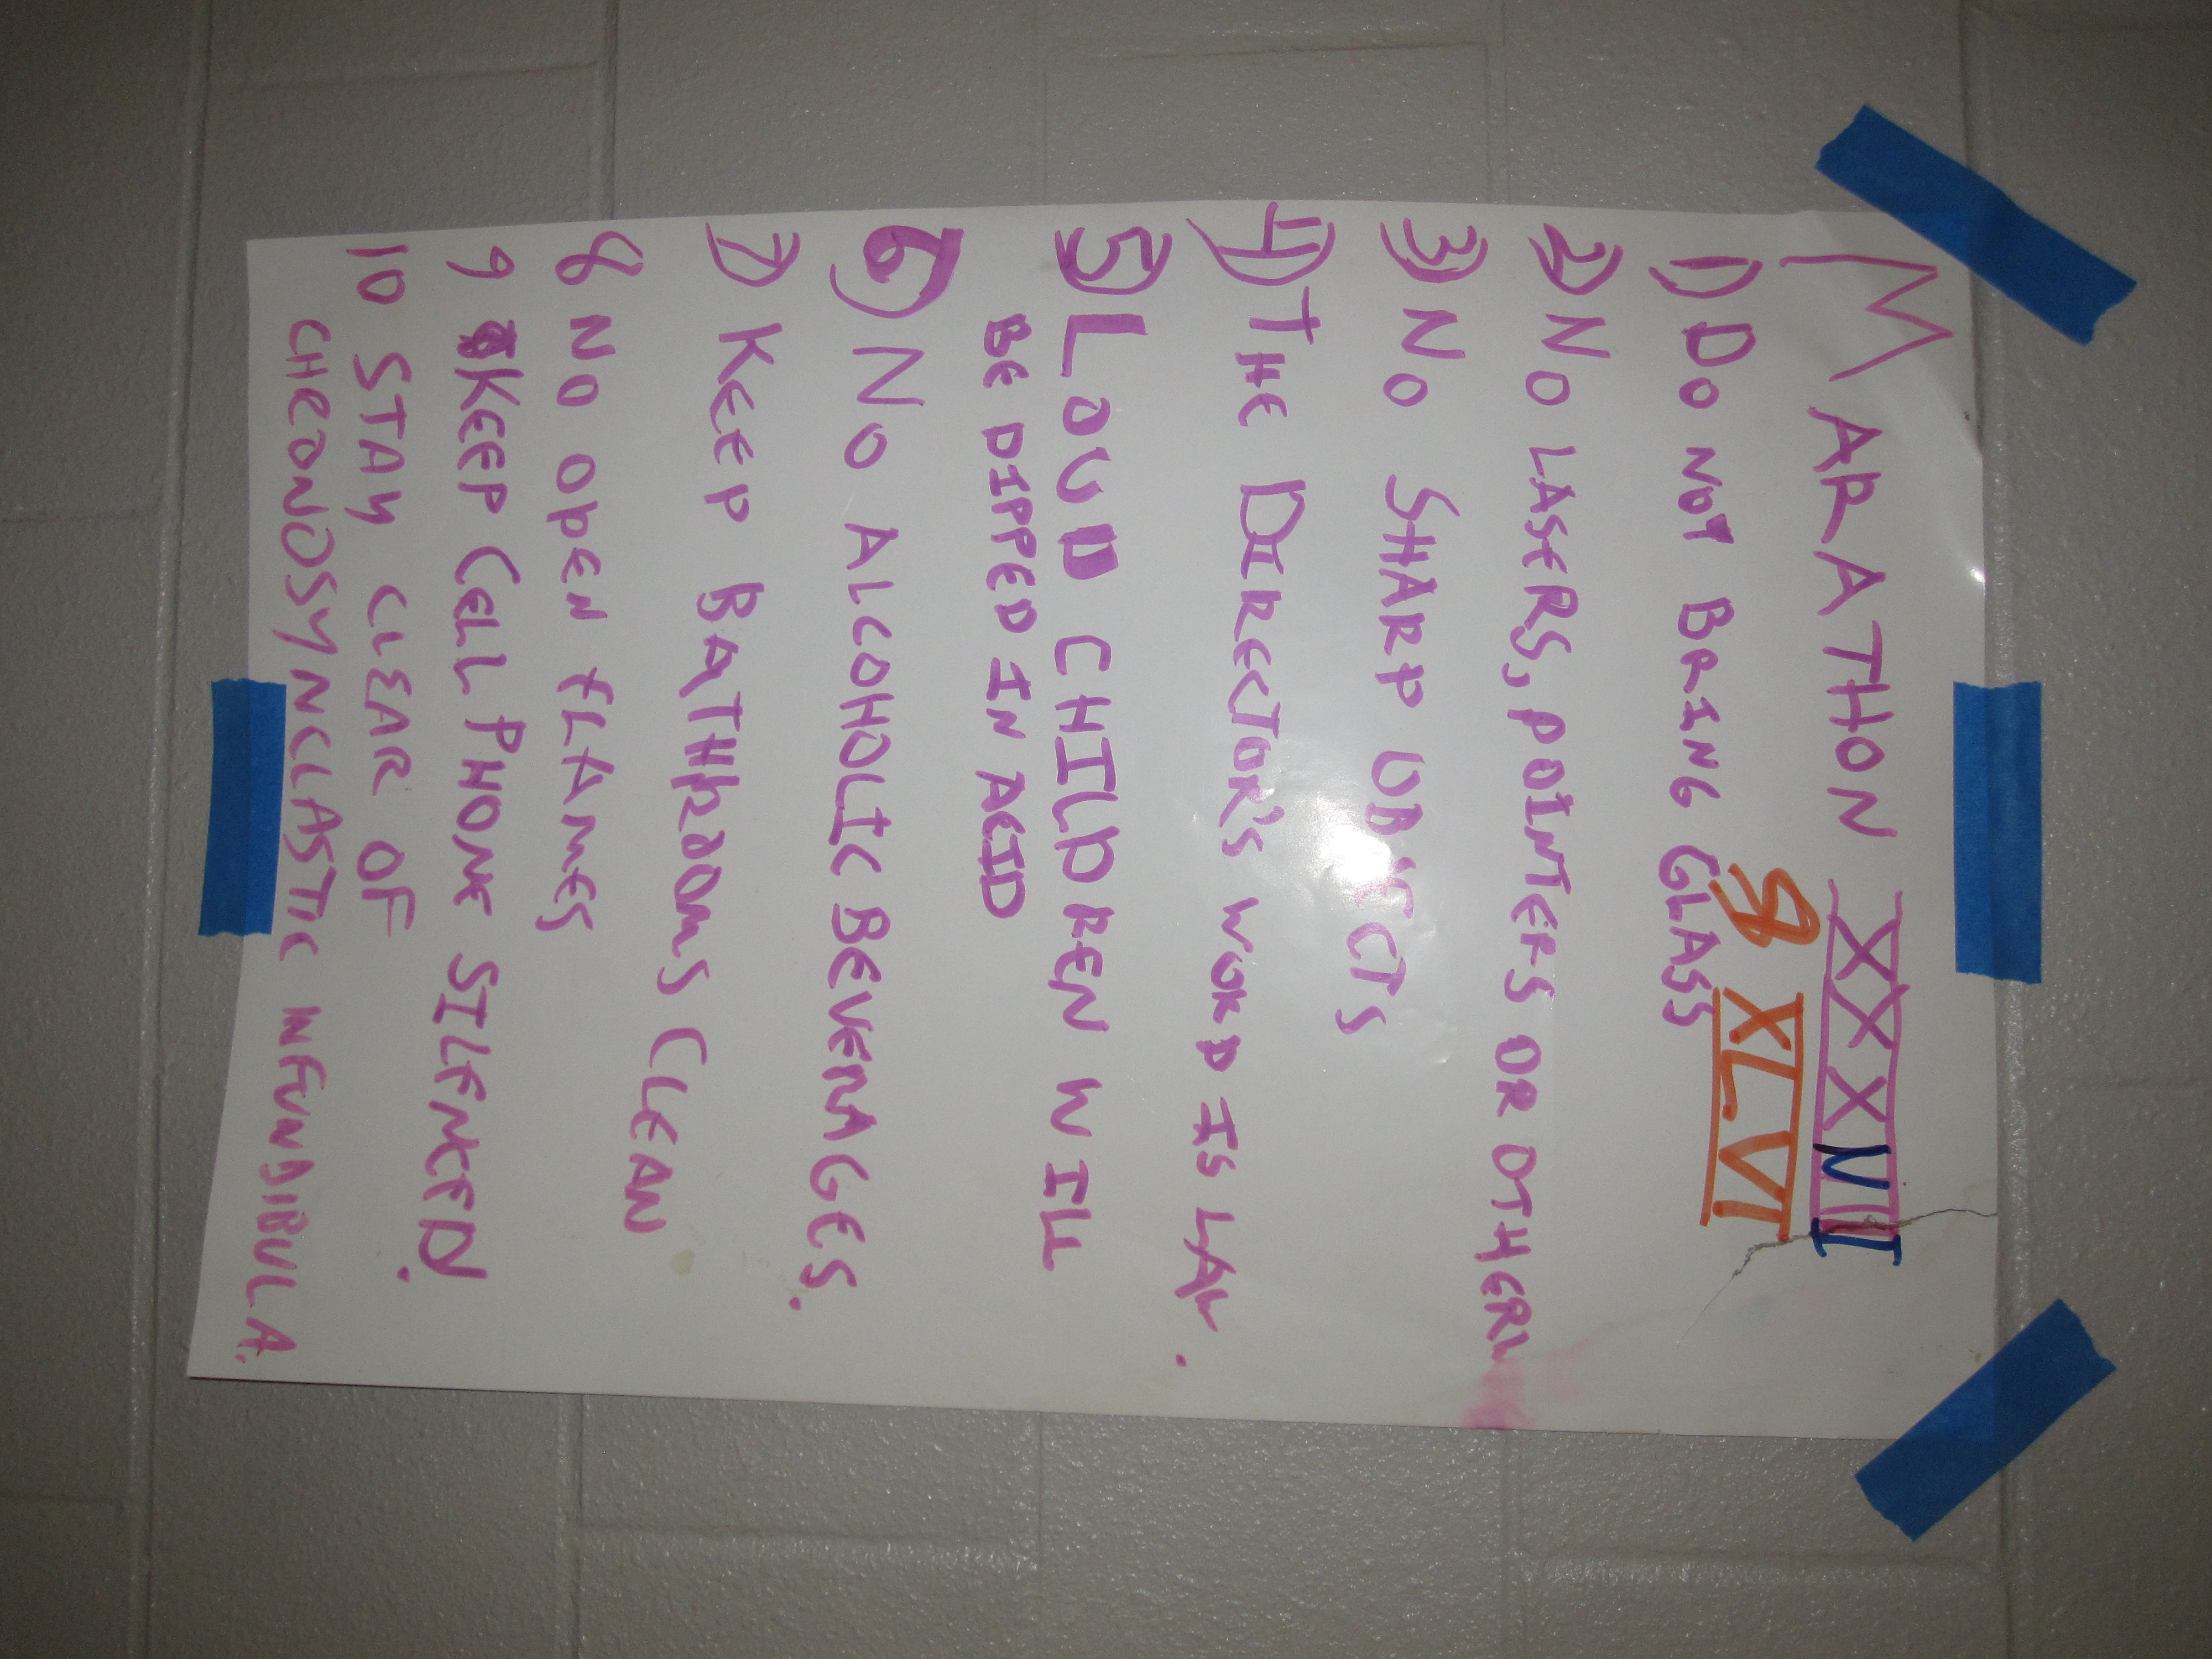 MARATHON XXXVII
& XLVI
1) DO NOT BRING GLASS
2) NO LASERS, POINTERS OR OTHER
3) NO SHARP OBJECTS
4) THE DIRECTOR'S WORD IS LAW.
5) LOUD CHILDREN WILL
BE DIPPED IN ACID
6) NO ALCOHOLIC BEVERAGES.
7) KEEP BATHROOMS CLEAN
8 NO OPEN FLAMES
9 KEEP CELL PHONE SILENCED!
10 STAY CLEAR OF
CHRONOSYNCLASTIC INFUNDIBULA.